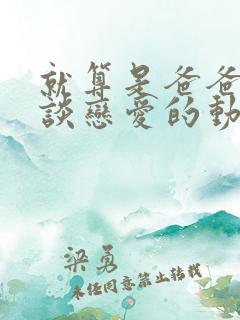 就算是爸爸
談戀愛的動
梁勇
未经同意禁止转载